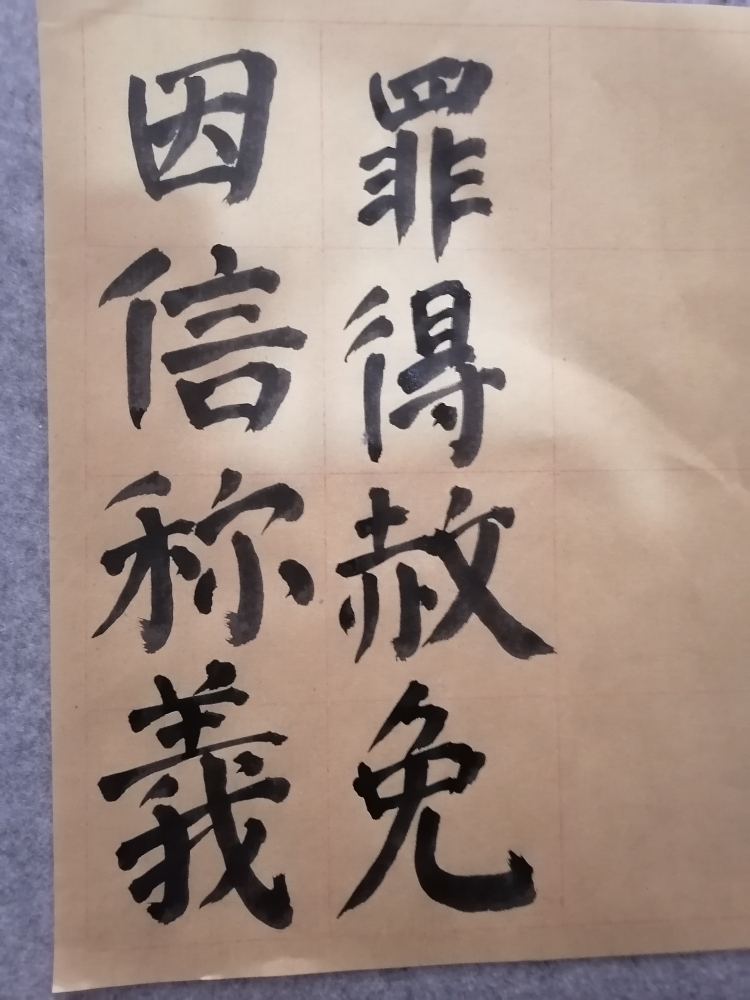 罪得赦免
因信称義